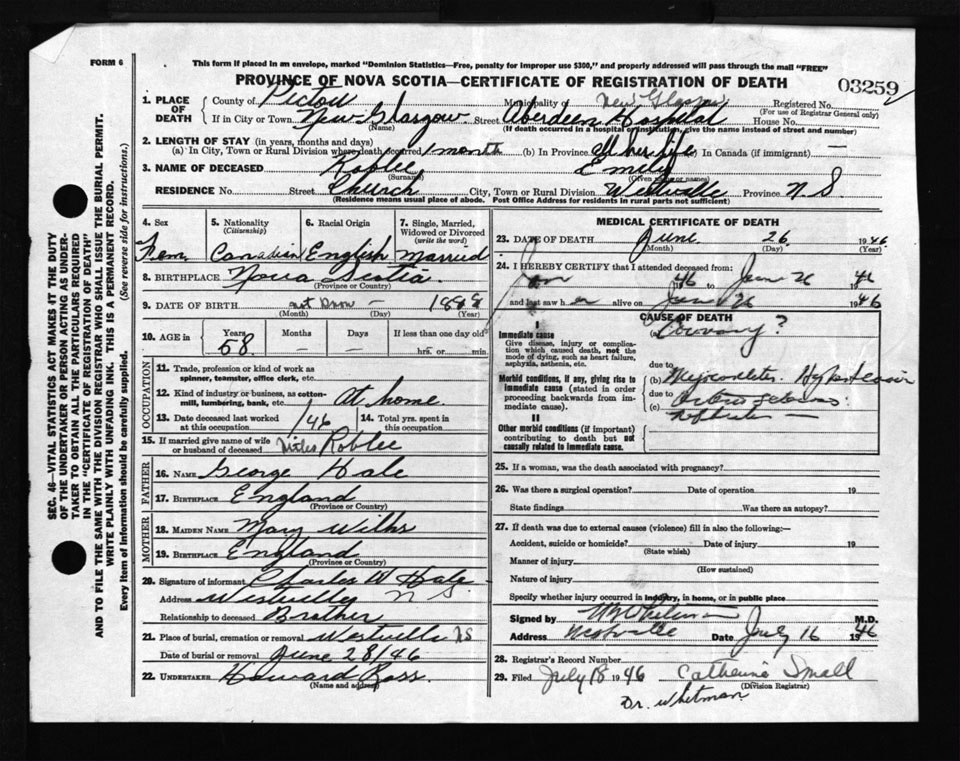 FORM 6
This form if placed in an envelope, marked "Dominion Statistics—Free, penalty for improper use $300," and properly addressed will pass through the mail "FREE"
PROVINCE OF NOVA SCOTIA—CERTIFICATE OF REGISTRATION OF DEATH
03259
1. PLACE OF DEATH County of Pictou Municipality of New Glasgow Registered No.
(For use of Registrar General only)
If in City or Town New Glasgow Street Aberdeen Hospital House No.
(Name) (If death occurred in a hospital or institution, give the name instead of street and number)
2. LENGTH OF STAY (in years, months and days)
(a) In City, Town or Rural Division where death occurred 1 month (b) In Province all her life (c) In Canada (if immigrant) —
3. NAME OF DECEASED Roblee Emily
(Surname) (Given name or names)
RESIDENCE No. Street Church City, Town or Rural Division Westville Province N.S
(Residence means usual place of abode. Post Office Address for residents in rural parts not sufficient)
4. Sex
Fem.
5. Nationality
(Citizenship)
Canadian
6. Racial Origin
English
7. Single, Married, Widowed or Divorced
(write the word)
Married
8. BIRTHPLACE Nova Scotia
(Province or County)
9. DATE OF BIRTH not know — 1888
(Month) (Day) (Year)
10. AGE in Years Months Days If less than one day old
58 — — hrs. or min.
OCCUPATION
11. Trade, profession or kind of work as
spinner, teamster, office clerk, etc.
12. Kind of industry or business, as cotton-
mill, lumbering, bank, etc. At home
13. Date deceased last worked
at this occupation /46
14. Total yrs. spent in
this occupation
15. If married give name of wife
or husband of deceased Roblee
FATHER
16. NAME George Hale
17. BIRTHPLACE England
(Province or County)
MOTHER
18. MAIDEN NAME Mary
19. BIRTHPLACE England
(Province or County)
20. Signature of informant Charles W Hale
Address Westville N S.
Relationship to deceased Brother
21. Place of burial, cremation or removal Westville NS
Date of burial or removal June 28/46
22. UNDERTAKER Howard Ross
(Name and address)
MEDICAL CERTIFICATE OF DEATH
23. DATE OF DEATH June 26 1946
(Month) (Day) (Year)
24. I HEREBY CERTIFY that I attended deceased from:
Jan 46 to June 26 1946
and last saw her alive on June 26 1946
CAUSE OF DEATH
I
Immediate cause
Give disease, injury or complica-
tion which caused death, not the
mode of dying, such as heart failure,
asphyxia, asthenia, etc.
(a) Coronary?
due to
Morbid conditions, if any, giving rise to
immediate cause (stated in order
proceeding backwards from im-
mediate cause).
(b)
due to
(c)
II
Other morbid conditions (if important)
contributing to death but not
causally related to immediate cause.
25. If a woman, was the death associated with pregnancy?
26. Was there a surgical operation? Date of operation 19
State findings Was there an autopsy?
27. If death was due to external causes (violence) fill in also the following:—
Accident, suicide or homicide? Date of injury 19
(State which)
Manner of injury
(How sustained)
Nature of injury
Specify whether injury occurred in industry, in home, or in public place
Signed by M.D.
Address Westville Date July 16 1946
28. Registrar's Record Number
29. Filed July 18 1946 Catherine Small
(Division Registrar)
Dr. Whitman
SEC. 46—VITAL STATISTICS ACT MAKES IT THE DUTY
OF THE UNDERTAKER OR PERSON ACTING AS UNDER-
TAKER TO OBTAIN ALL THE PARTICULARS REQUIRED
IN THE "CERTIFICATE OF REGISTRATION OF DEATH"
AND TO FILE THE SAME WITH THE DIVISION REGISTRAR WHO SHALL ISSUE THE BURIAL PERMIT.
WRITE PLAINLY WITH UNFADING INK. THIS IS A PERMANENT RECORD.
Every item of information should be carefully supplied. (See reverse side for instructions.)